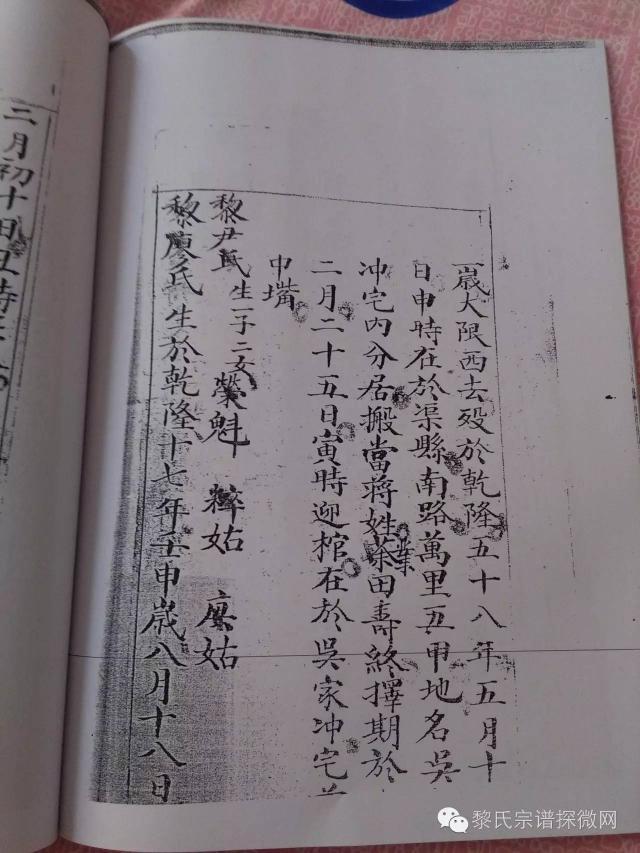 一歲大限西去殁於乾隆五十八年五月十
日申時在於渠縣南路萬里五甲地名吳
冲宅内分居搬當蔣姓業田壽終擇期於
二月二十五日寅時迎棺在於吳家冲宅
中嘴
黎尹氏生一子二女 榮魁 粹姑 姑
黎廖氏生於乾隆十七年壬申歲八月十八日
三月初十日丑時
黎氏宗谱探微网